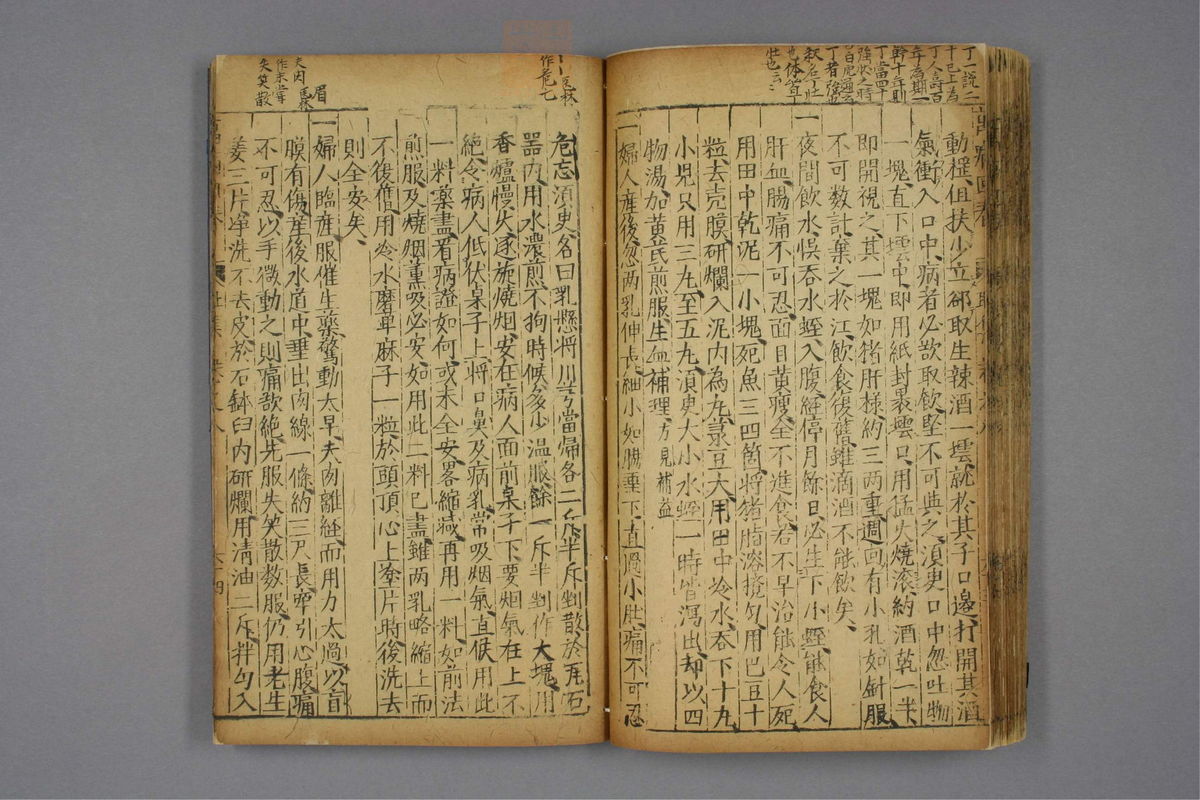 動桯但扶少立郤取生辣酒一壜就於其子口邊打開其酒
氣衝入口中病者必欲取飲堅不可與之湏㬰口中忽吐物
一塊直下壜中即用紙封褁壜口用猛火燒滚約酒乾一半
即開視之其一塊如猪肝様約三両重週囬有小孔如針服
不可数計棄之於江飲食復舊雖滴酒不能飲矣
一夜間飲水悮吞水蛭入腹經停月餘日必生下小蛭能食人
肝血腸痛不可忍面目黄瘦全不進食若不早治能令人死
用田中乾泥一小塊死魚三四箇將猪脂溶攪匀用巴豆十
粒去壳膜研爛入泥内為丸菉豆大用田中冷水吞下十丸
小児只用三丸至五丸湏㬰大小水蛭一時皆瀉出却以四
物湯加黄芪煎服生血補理方見補益
一婦人産後忽两乳伸長細小如膓垂下直過小肚痛不可忍
危忘湏㬰名曰乳懸將川芎當帰各二斤半斤剉散於瓦石
器内用水濃煎不拘時候多少温服餘一斤半剉作大塊用
香爐慢火逐旋燒烟安在病人面前桌子下要烟氣在上不
絶令病人低伏桌子上將口鼻及病乳常吸烟氣直候用此
一料藥盡看病證如何或未全安畧縮减再用一料如前法
煎服及燒烟薫吸必安如用此二料已盡雖两乳略縮上而
不復舊用冷水磨萆麻子一粒於頭頂心上塗片時後洗去
則全安矣
一婦人臨産服催生藥驚動太早夫肉離經而用力太過以盲
膜有傷産後水道中垂出肉線一條約三尺長牽引心腹痛
不可忍以手微動之則痛欲絶先服失笑散数服仍用老生
姜三斤淨洗不去皮於石鉢臼内研爛用清油二斤拌匀入